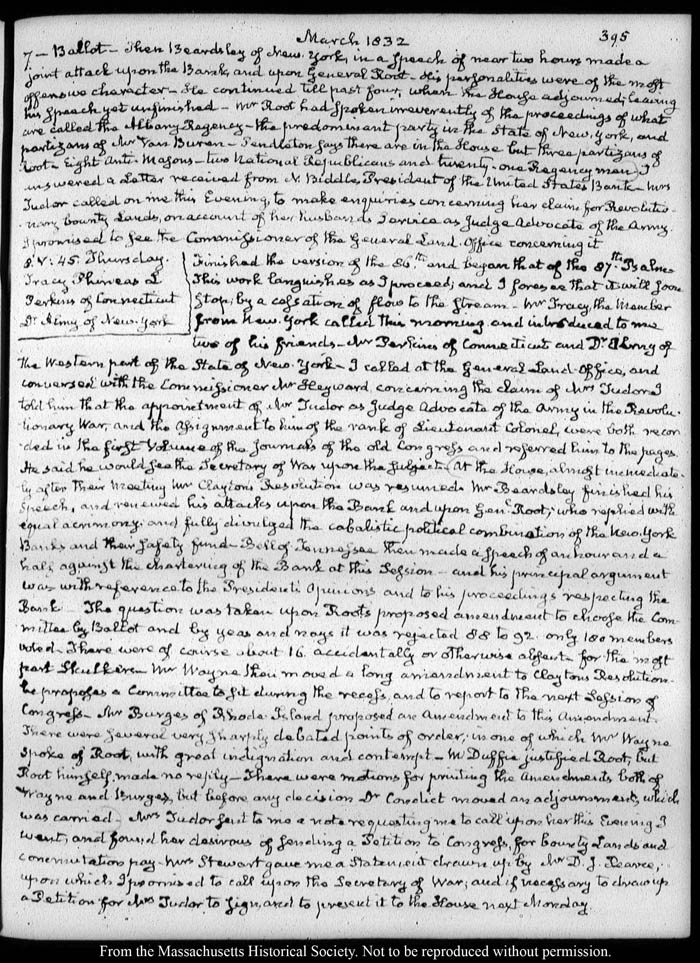 March 1832 395
7 — Ballot — Then Beardsley of New York, in a Speech of near two hours made a
joint attack upon the Bank, and upon General Root — His personalities were of the most
offensive character — He continued till past four, when the House adjourned; leaving
his Speech yet unfinished — Mr Root had Spoken irreverently of the proceedings of what
are called the Albany Regency — the predominant party in the State of New York, and
partizans of Mr Van Buren — Pendleton says there are in the House but three partizans of
Root — Eight Anti-Masons — two National Republicans and twenty-one Regency men) I
answered a Letter received from N. Biddle, President of the United States Bank — Mrs
Tudor called on me this Evening, to make enquiries concerning her claim for Revolutio-
nary bounty Lands, on account of her husband's Service as Judge Advocate of the Army.
I promised to see the Commissioner of the General Land Office concerning it
8. V: 45. Thursday.
Tracy Phineas L
Perkins of Connecticut
Dr Army of New-York
Finished the version of the 86th and began that of the 87th Psalms
This work languishes as I proceed; and I foresee that it will soon
Stop; by a cessation of flow to the Stream — Mr Tracy, the Member
from New York called this morning and introduced to me
two of his friends — Mr Perkins of Connecticut and Dr Army of
the Western part of the State of New York — I called at the General Land-Office, and
conversed with the Commissioner Mr Heyward, concerning the claim of Mrs Tudor. I
told him that the appointment of Mr Tudor as Judge Advocate of the Army in the Revolu-
tionary War, and the Assignment to him of the rank of Lieutenant Colonel, were both recor-
ded in the first Volume of the Journals of the old Congress and referred him to the pages.
He said he would see the Secretary of War upon the Subject. (At the House, almost immediate-
ly after their meeting Mr Clayton's Resolution was resumed. Mr Beardsley finished his
Speech, and renewed his attacks upon the Bank and upon Genl Root; who replied with
equal acrimony; and fully divulged the cabalistic political combination of the New York
Banks and their Safety fund — Bell of Tennessee then made a Speech of an hour and a
half against the chartering of the Bank at this Session — and his principal argument
was with reference to the President's Opinions and to his proceedings respecting the
Bank — The question was taken upon Root's proposed amendment to choose the Com-
mittee by Ballot and by yeas and nays it was rejected 88 to 92. only 180 members
voted — There were of course about 16 accidentally or otherwise absent — for the most
part Skulkers — Mr Wayne then moved a long amendment to Clayton's Resolution.
he proposes a Committee to sit during the recess, and to report to the next Session of
Congress — Mr Burges of Rhode-Island proposed an Amendment to this Amendment.
There were several very sharply debated points of order; in one of which Mr Wayne
Spoke of Root, with great indignation and contempt — McDuffie justified Root, but
Root himself made no reply — There were motions for printing the Amendments both of
Wayne and Burges, but before any decision Dr Condict moved an adjournment, which
was carried.) Mrs Tudor sent to me a note requesting me to call upon her this Evening I
went, and found her desirous of sending a Petition to Congress, for bounty Lands and
commutation pay — Mrs Stewart gave me a Statement drawn up by Mr D. J. Pearce,
upon which I promised to call upon the Secretary of War; and if necessary to draw up
a Petition for Mrs Tudor to sign, and to present it to the House next Monday.
From the Massachusetts Historical Society. Not to be reproduced without permission.